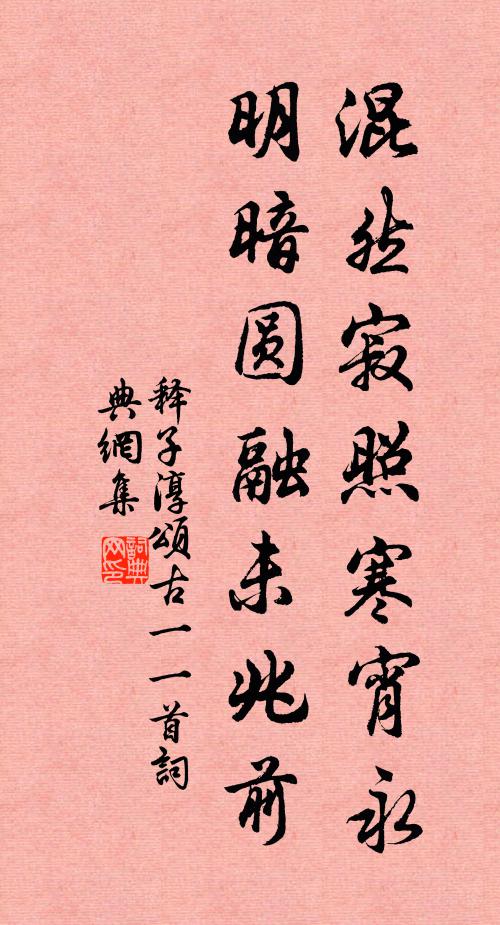 混然寂照寒宵永
明暗圆融未兆前
释子淳頌古一一首詞
典網集
詞典
网印